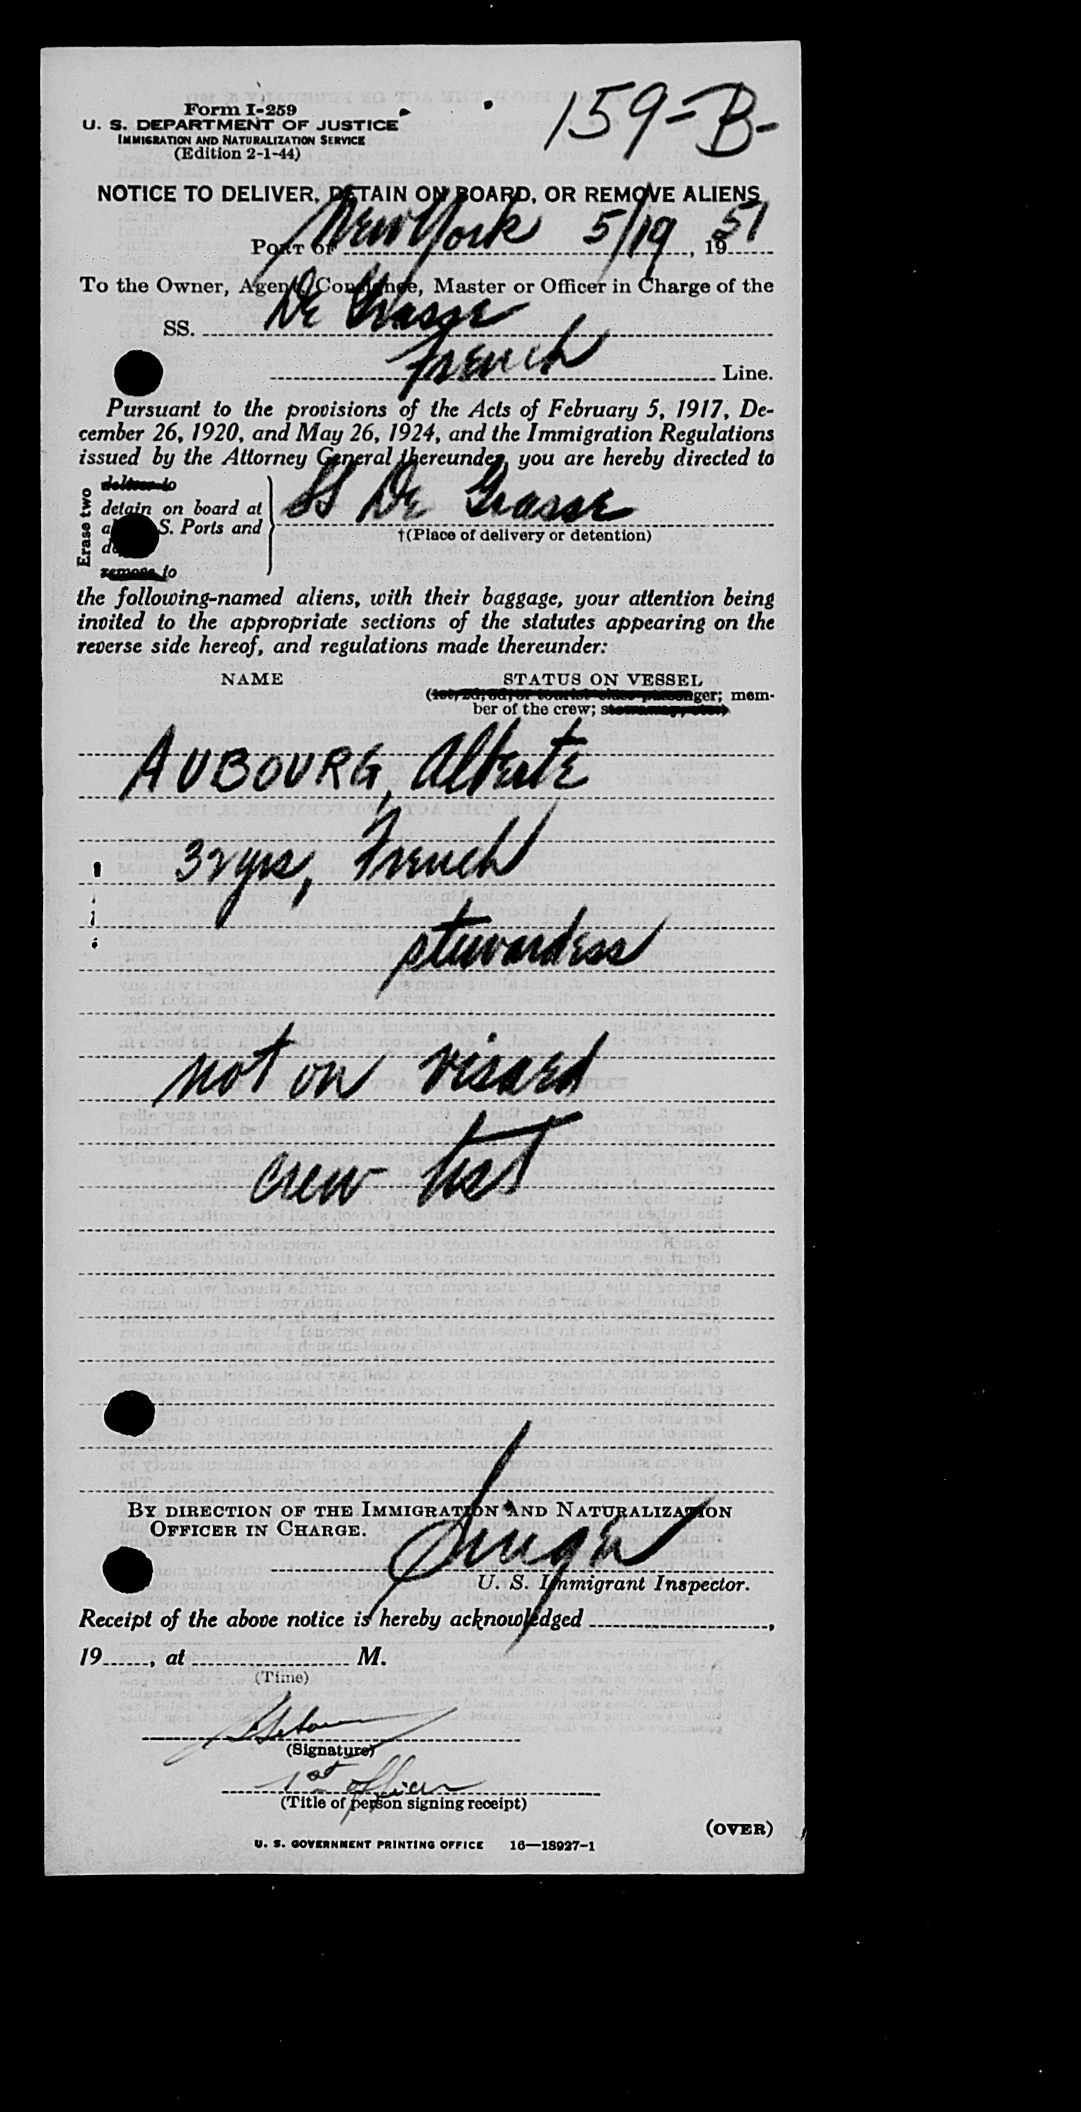 159-B-
Form I-259
U. S. DEPARTMENT OF JUSTICE
IMMIGRATION AND NATURALIZATION SERVICE
(Edition 2-1-44)
NOTICE TO DELIVER, DETAIN ON BOARD, OR REMOVE ALIENS
PORT OF New York 5/19, 1951
To the Owner, Agent, Consignee, Master or Officer in Charge of the
SS. De Grasse
French Line.
Pursuant to the provisions of the Acts of February 5, 1917, De-
cember 26, 1920, and May 26, 1924, and the Immigration Regulations
issued by the Attorney General thereunder, you are hereby directed to
Erase two
deliver to
detain on board at
S. Ports and
SS De Grasse
†(Place of delivery or detention)
remove to
the following-named aliens, with their baggage, your attention being
invited to the appropriate sections of the statutes appearing on the
reverse side hereof, and regulations made thereunder:
NAME STATUS ON VESSEL
(1st, 2d, 3d, or tourist class passenger; mem-
ber of the crew; stowaway, etc.)
AUBOURG, Alberte
32 yrs, French
stewardess
not on visaed
crew list
BY DIRECTION OF THE IMMIGRATION AND NATURALIZATION
OFFICER IN CHARGE.
U. S. Immigrant Inspector.
Receipt of the above notice is hereby acknowledged ,
19 , at M.
(Time)
(Signature)
1st officer
(Title of person signing receipt)
(OVER)
U. S. GOVERNMENT PRINTING OFFICE 16—18927-1